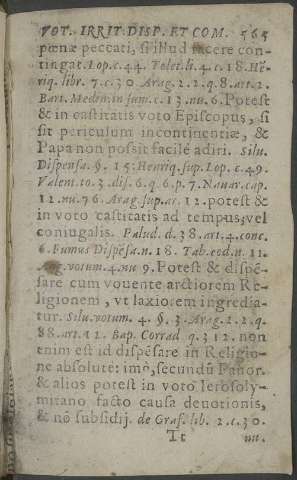 VOT. IRRIT. DISP. ET COM. 565
pœnæ peccati, si illud facere con-
tingat. Lop. c. 44. Tolet. li. 4. c. 18. Hē-
riq. libr. 7. c. 30. Arag. 2. 2. q. 8. art. 2.
Bart. Medin. in sum. c. 13. nu. 6. Potest
& in castitatis voto Episcopus, si
sit periculum incontinentiæ, &
Papa non possit facilè adiri. Silu.
Dispensa. 9. 15. Henriq. sup. Lop. c. 49.
Valent. to. 3. dis. 6. q. 6. p. 7. Nauar. cap.
12. nu. 76. Arag. sup. ar. 12. potest &
in voto castitatis ad tempus, vel
coniugalis. Palud. d. 38. art. 4. conc.
6. Fumus Dispēsa. n. 18. Tab. eod. n. 11.
Ang. votum. 4. nu 9. Potest & dispē-
sare cum vouente arctiorem Re-
ligionem, vt laxiorem ingredia-
tur. Silu. votum. 4. §. 3. Arag. 2. 2. q.
88. art. 12. Bap. Corrad. q. 312. non
enim est id dispēsare in Religio-
ne absolutè: imò, secundū Panor.
& alios potest in voto Ierosoly-
mitano facto causa deuotionis,
& nō subsidij. de Graf. lib. 2. c. 30.
Tt nu.